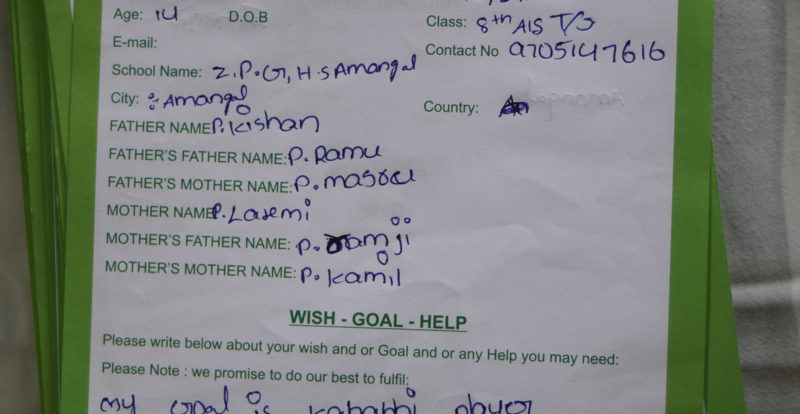 Age: 14 D.O.B Class: 8th AIS T/S
E-mail: Contact No 9705147616
School Name: Z.P.G, H.S Amangal
City: Amangal Country:
FATHER NAME P.Kishan
FATHER'S FATHER NAME: P. Ramu
FATHER'S MOTHER NAME: P.
MOTHER NAME P. Laxemi
MOTHER'S FATHER NAME: P. ramji
MOTHER'S MOTHER NAME: P. kamil
WISH - GOAL - HELP
Please write below about your wish and or Goal and or any Help you may need:
Please Note : we promise to do our best to fulfil:
my goal is kababbi player